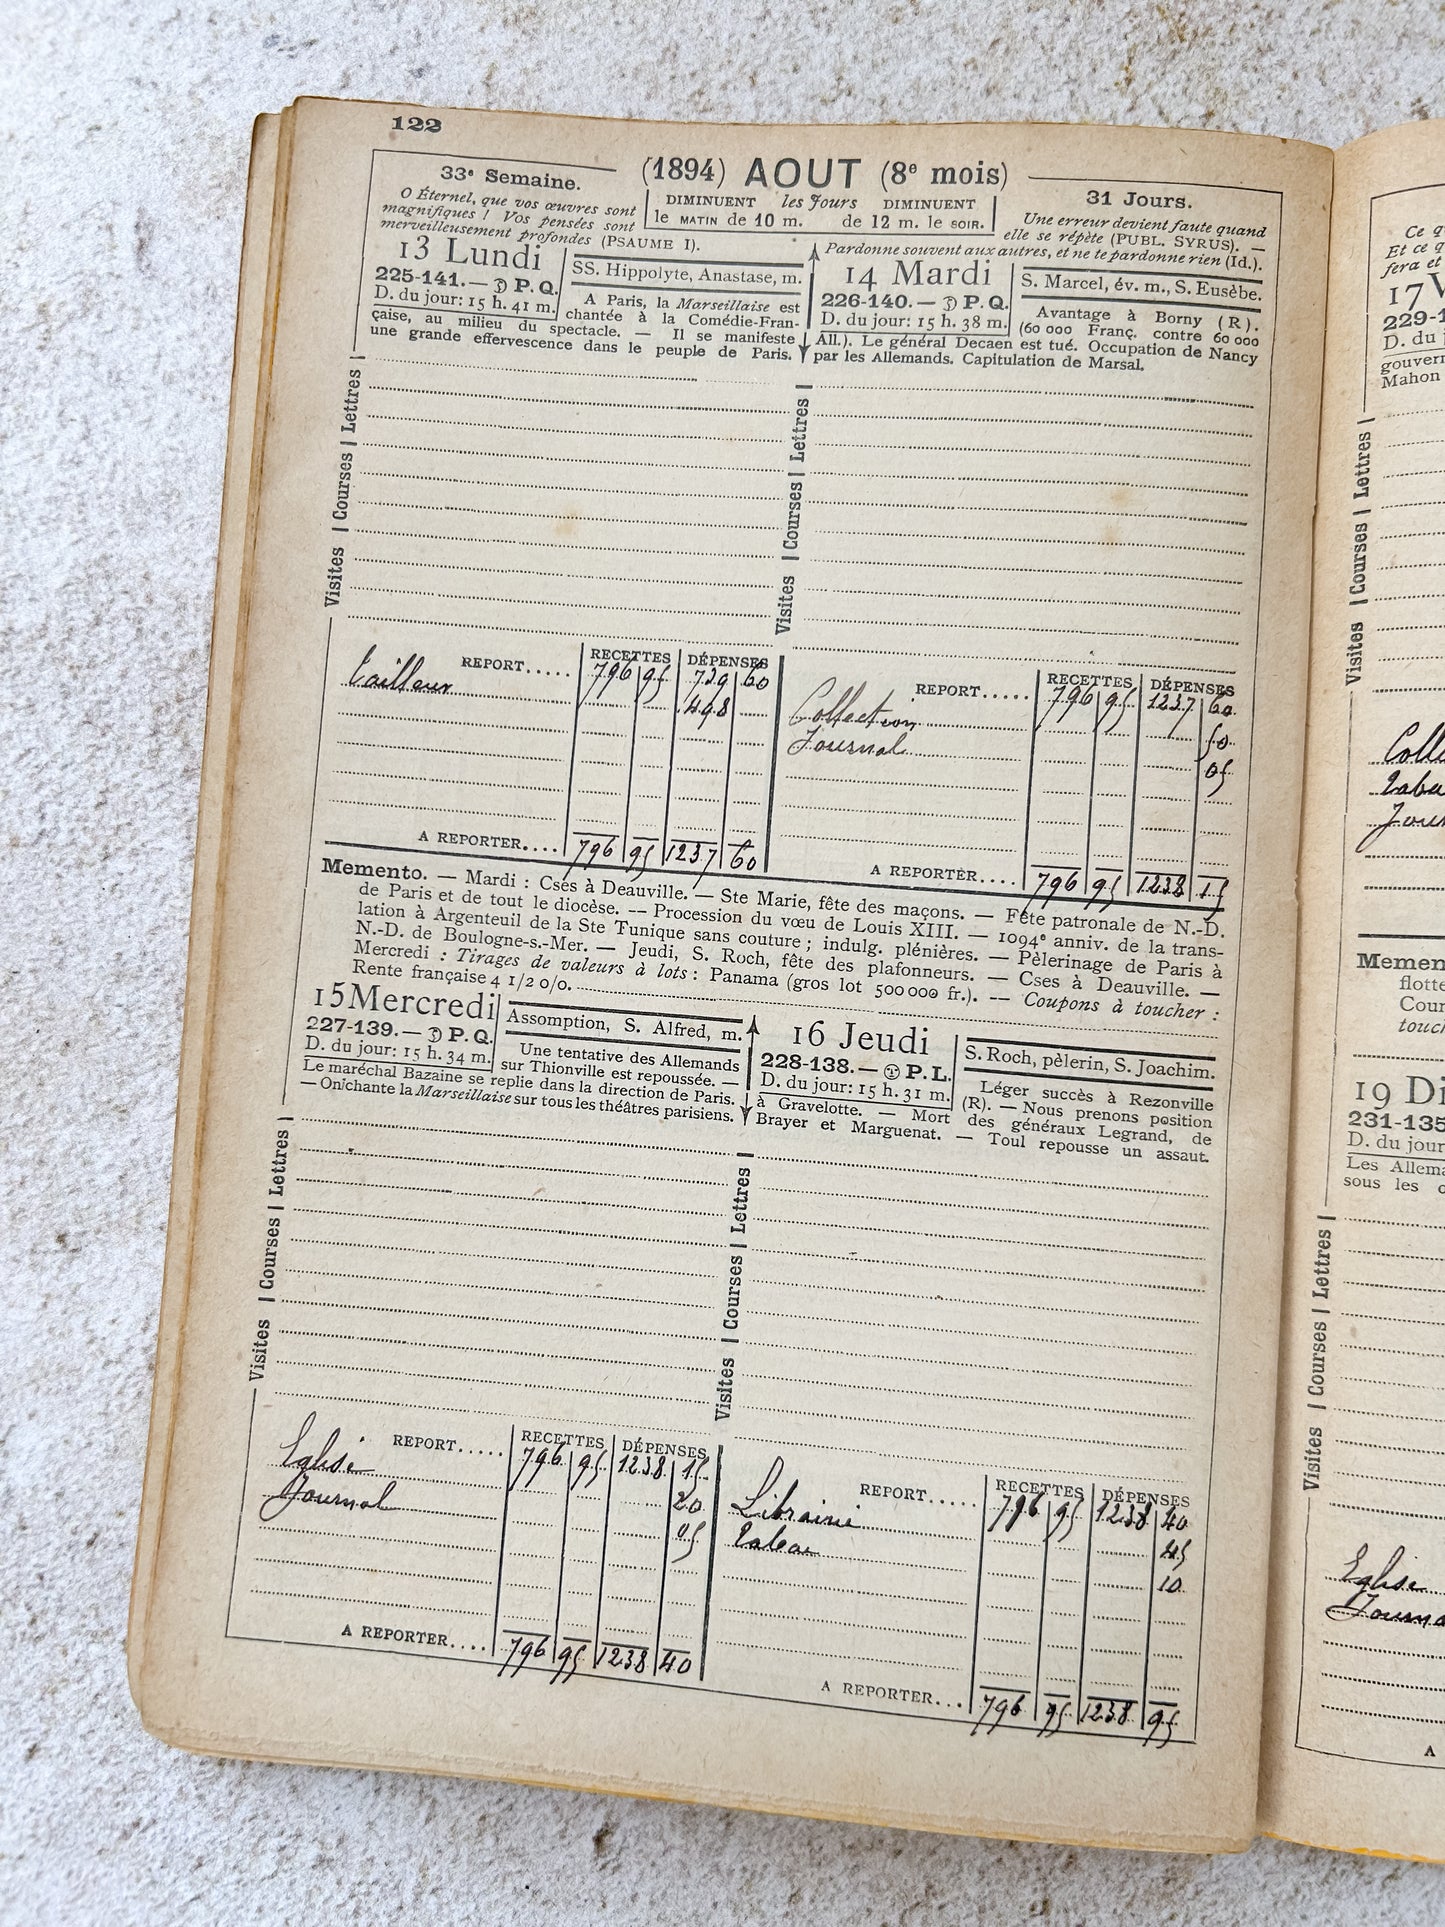 122
33e Semaine.
(1894) AOUT (8e mois)
31 Jours.
O Éternel, que vos œuvres sont
magnifiques ! Vos pensées sont
merveilleusement profondes (PSAUME I).
DIMINUENT les Jours DIMINUENT
le MATIN de 10 m. de 12 m. le SOIR.
Une erreur devient faute quand
elle se répète (PUBL. SYRUS). —
Pardonne souvent aux autres, et ne te pardonne rien (Id.).
13 Lundi
225-141. — P. Q.
D. du jour: 15 h. 41 m.
SS. Hippolyte, Anastase, m.
A Paris, la Marseillaise est
chantée à la Comédie-Fran-
çaise, au milieu du spectacle. — Il se manifeste
une grande effervescence dans le peuple de Paris.
Visites | Courses | Lettres |
REPORT..... RECETTES DÉPENSES
796 95 739 60
Tailleur 498
A REPORTER.... 796 95 1237 60
14 Mardi
226-140. — P. Q.
D. du jour: 15 h. 38 m.
S. Marcel, év. m., S. Eusèbe.
Avantage à Borny (R).
(60 000 Franç. contre 60 000
All.). Le général Decaen est tué. Occupation de Nancy
par les Allemands. Capitulation de Marsal.
Visites | Courses | Lettres |
REPORT..... RECETTES DÉPENSES
796 95 1237 60
Collection 50
Journal 05
A REPORTER.... 796 95 1238 15
Memento. — Mardi : Cses à Deauville. — Ste Marie, fête des maçons. — Fête patronale de N.-D.
de Paris et de tout le diocèse. -- Procession du vœu de Louis XIII. — 1094e anniv. de la trans-
lation à Argenteuil de la Ste Tunique sans couture ; indulg. plénières. — Pèlerinage de Paris à
N.-D. de Boulogne-s.-Mer. — Jeudi, S. Roch, fête des plafonneurs. — Cses à Deauville. —
Mercredi : Tirages de valeurs à lots : Panama (gros lot 500 000 fr.). -- Coupons à toucher :
Rente française 4 1/2 0/0.
15 Mercredi
227-139. — P. Q.
D. du jour: 15 h. 34 m.
Assomption, S. Alfred, m.
Une tentative des Allemands
sur Thionville est repoussée. —
Le maréchal Bazaine se replie dans la direction de Paris.
— On chante la Marseillaise sur tous les théâtres parisiens.
Visites | Courses | Lettres |
REPORT..... RECETTES DÉPENSES
796 95 1238 15
Eglise 20
Journal 05
A REPORTER.... 796 95 1238 40
16 Jeudi
228-138. — P. L.
D. du jour: 15 h. 31 m.
S. Roch, pèlerin, S. Joachim.
Léger succès à Rezonville
(R). — Nous prenons position
à Gravelotte. — Mort des généraux Legrand, de
Brayer et Marguenat. — Toul repousse un assaut.
Visites | Courses | Lettres |
REPORT..... RECETTES DÉPENSES
796 95 1238 40
Librairie 45
Tabac 10
A REPORTER... 796 95 1238 95
Ce q
Et ce q
fera et
17 V
229-1
D. du
gouvern
Mahon
Visites | Courses | Lettres |
Colle
Taba
Jour
Memen
flotte
Cour
touch
19 Di
231-135
D. du jour
Les Allema
sous les
Visites | Courses | Lettres |
Eglise
Journa
A